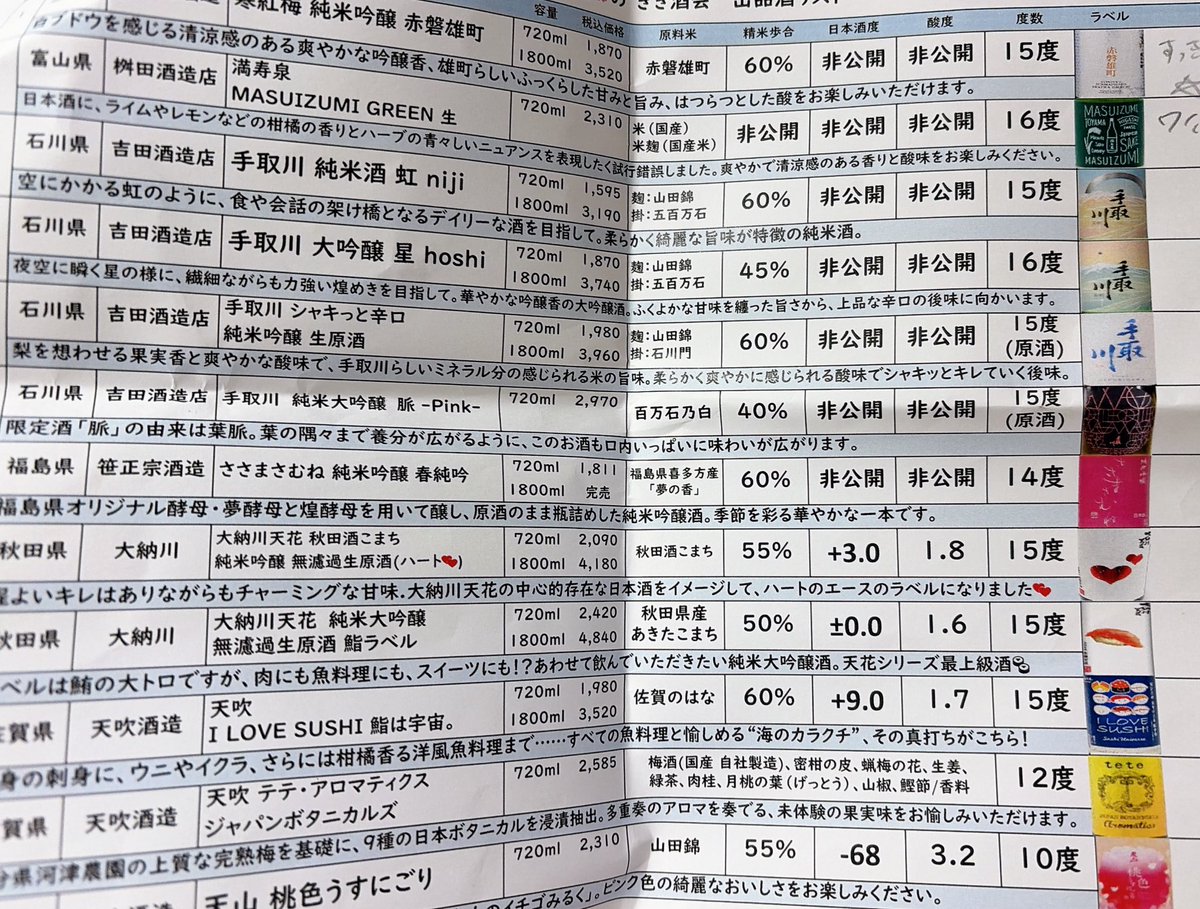 ささ酒会 出品酒リスト
容量 税込価格 原料米 精米歩合 日本酒度 酸度 度数 ラベル
寒紅梅 純米吟醸 赤磐雄町 720ml 1,870 赤磐雄町 60% 非公開 非公開 15度
1800ml 3,520
ブドウを感じる清涼感のある爽やかな吟醸香、雄町らしいふっくらした甘みと旨み、はつらつとした酸をお楽しみいただけます。
富山県 桝田酒造店 満寿泉 720ml 2,310 米(国産) 非公開 非公開 非公開 16度
MASUIZUMI GREEN 生 米麹(国産米)
日本酒に、ライムやレモンなどの柑橘の香りとハーブの青々しいニュアンスを表現したく試行錯誤しました。爽やかで清涼感のある香りと酸味をお楽しみください。
石川県 吉田酒造店 手取川 純米酒 虹 niji 720ml 1,595 麹:山田錦 60% 非公開 非公開 15度
1800ml 3,190 掛:五百万石
空にかかる虹のように、食や会話の架け橋となるデイリーな酒を目指して。柔らかく綺麗な旨味が特徴の純米酒。
石川県 吉田酒造店 手取川 大吟醸 星 hoshi 720ml 1,870 麹:山田錦 45% 非公開 非公開 16度
1800ml 3,740 掛:五百万石
夜空に瞬く星の様に、繊細ながらも力強い煌めきを目指して。華やかな吟醸香の大吟醸酒。ふくよかな甘味を纏った旨さから、上品な辛口の後味に向かいます。
石川県 吉田酒造店 手取川 シャキっと辛口 720ml 1,980 麹:山田錦 60% 非公開 非公開 15度
純米吟醸 生原酒 1800ml 3,960 掛:石川門 (原酒)
梨を想わせる果実香と爽やかな酸味で、手取川らしいミネラル分の感じられる米の旨味。柔らかく爽やかに感じられる酸味でシャキッとキレていく後味。
石川県 吉田酒造店 手取川 純米大吟醸 脈 -Pink- 720ml 2,970 百万石乃白 40% 非公開 非公開 15度
(原酒)
限定酒「脈」の由来は葉脈。葉の隅々まで養分が広がるように、このお酒も口内いっぱいに味わいが広がります。
福島県 笹正宗酒造 ささまさむね 純米吟醸 春純吟 720ml 1,811 福島県喜多方産 60% 非公開 非公開 14度
1800ml 完売 「夢の香」
福島県オリジナル酵母・夢酵母と煌酵母を用いて醸し、原酒のまま瓶詰めした純米吟醸酒。季節を彩る華やかな一本です。
秋田県 大納川 大納川天花 秋田酒こまち 720ml 2,090 秋田酒こまち 55% +3.0 1.8 15度
純米吟醸 無濾過生原酒(ハート❤) 1800ml 4,180
よいキレはありながらもチャーミングな甘味.大納川天花の中心的存在な日本酒をイメージして、ハートのエースのラベルになりました❤
秋田県 大納川 大納川天花 純米大吟醸 720ml 2,420 秋田県産 50% ±0.0 1.6 15度
無濾過生原酒 鮨ラベル 1800ml 4,840 あきたこまち
ベルは鮪の大トロですが、肉にも魚料理にも、スイーツにも!?あわせて飲んでいただきたい純米大吟醸酒。天花シリーズ最上級酒
佐賀県 天吹酒造 天吹 720ml 1,980 佐賀のはな 60% +9.0 1.7 15度
I LOVE SUSHI 鮨は宇宙。 1800ml 3,520
身の刺身に、ウニやイクラ、さらには柑橘香る洋風魚料理まで……すべての魚料理と愉しめる“海のカラクチ”、その真打ちがこちら!
賀県 天吹酒造 天吹 テテ・アロマティクス 720ml 2,585 梅酒(国産 自社製造)、蜜柑の皮、蝋梅の花、生姜、 12度
ジャパンボタニカルズ 緑茶、肉桂、月桃の葉(げっとう)、山椒、鰹節/香料
分県河津農園の上質な完熟梅を基礎に、9種の日本ボタニカルを浸漬抽出。多重奏のアロマを奏でる、未体験の果実味をお愉しみいただけます。
天山 桃色うすにごり 720ml 2,310 山田錦 55% -68 3.2 10度
イチゴみるく」。ピンク色の綺麗なおいしさをお楽しみください。
赤磐雄町
MASUIZUMI
TOYAMA
SAKE
MASUIZUMI
手取川
手取川
手取川
I LOVE
SUSHI
Sushi Universe
tete
JAPAN BOTANICALS
Aromatics
桃色